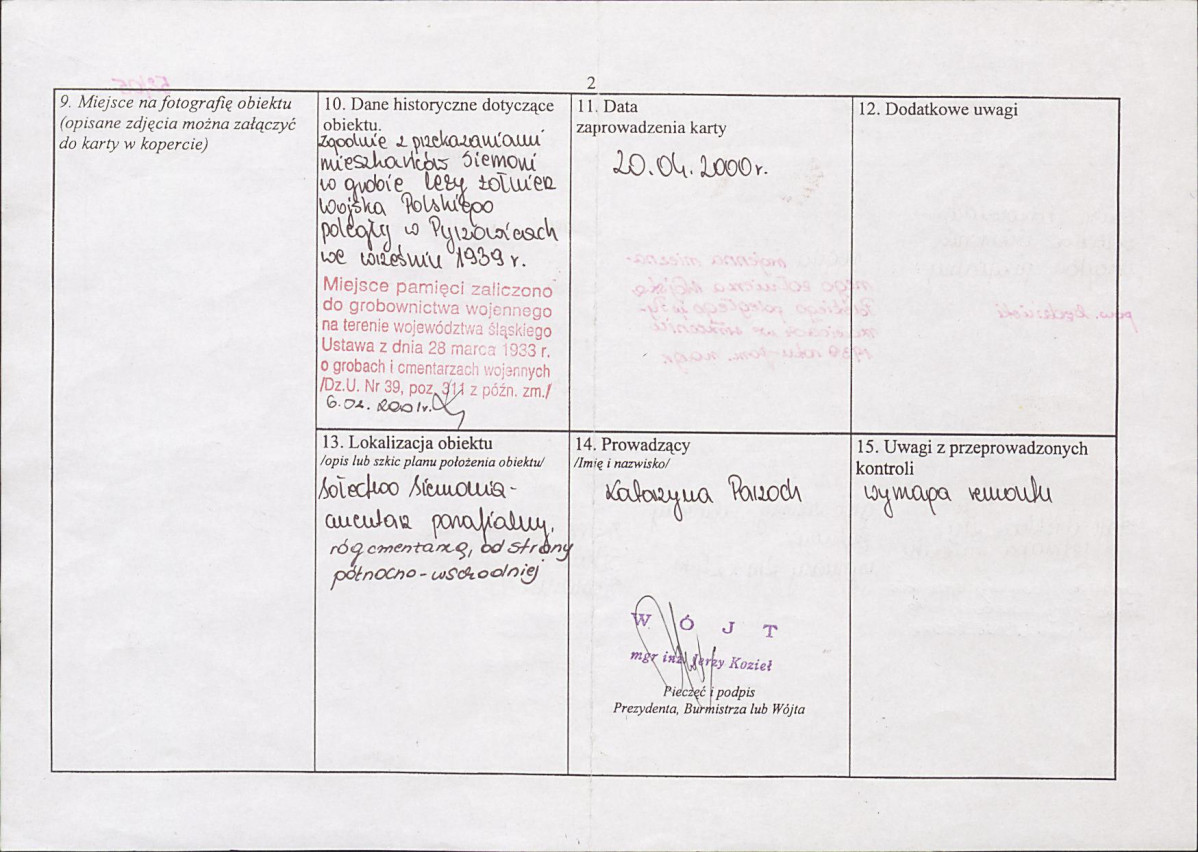 2
9. Miejsce na fotografię obiektu
(opisane zdjęcia można załączyć
do karty w kopercie)
10. Dane historyczne dotyczące
obiektu.
Zgodnie z przekazaniami
mieszkańców Siemoni
w grobie leży żołnierz
Wojska Polskiego
poległy w Pyrzowicach
we wrześniu 1939 r.
Miejsce pamięci zaliczono
do grobownictwa wojennego
na terenie województwa śląskiego
Ustawa z dnia 28 marca 1933 r.
o grobach i cmentarzach wojennych
/Dz.U. Nr 39, poz. 311 z późn. zm./
6.02.2001r.
11. Data
zaprowadzenia karty
20.04.2000r.
12. Dodatkowe uwagi
13. Lokalizacja obiektu
/opis lub szkic planu położenia obiektu/
Sołectwo Siemonia-
cmentarz parafialny,
róg cmentarza, od strony
północno-wschodniej
14. Prowadzący
/Imię i nazwisko/
Katarzyna Parzoch
WÓJT
mgr inż. Jerzy Kozieł
Pieczęć i podpis
Prezydenta, Burmistrza lub Wójta
15. Uwagi z przeprowadzonych
kontroli
wymaga remontu